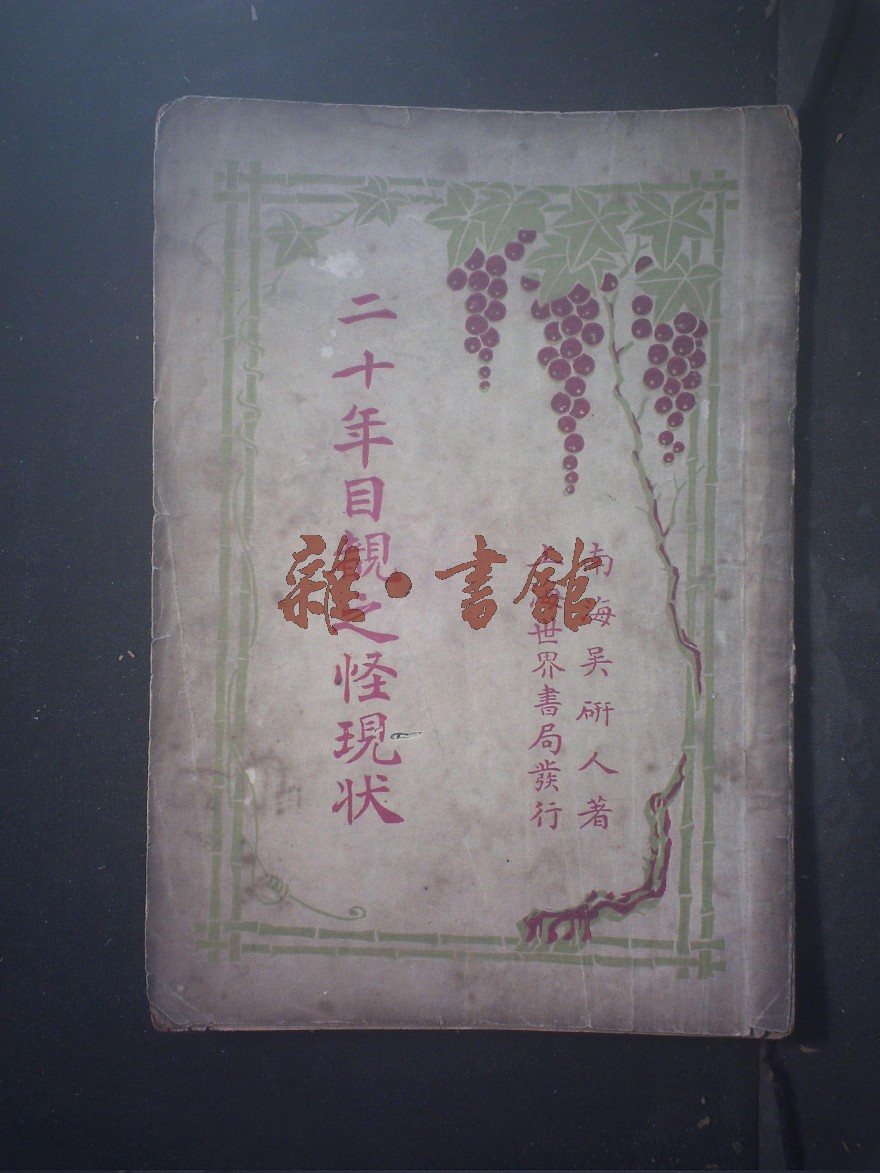 南海吳研人著
世界書局發行
二十年目覩之怪現状
雜·書館